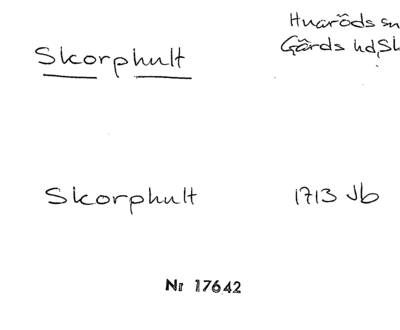 Skorphult
Huaröds sn
Gärds hd, Sk
Skorphult
1713 Jb
Nr 17642